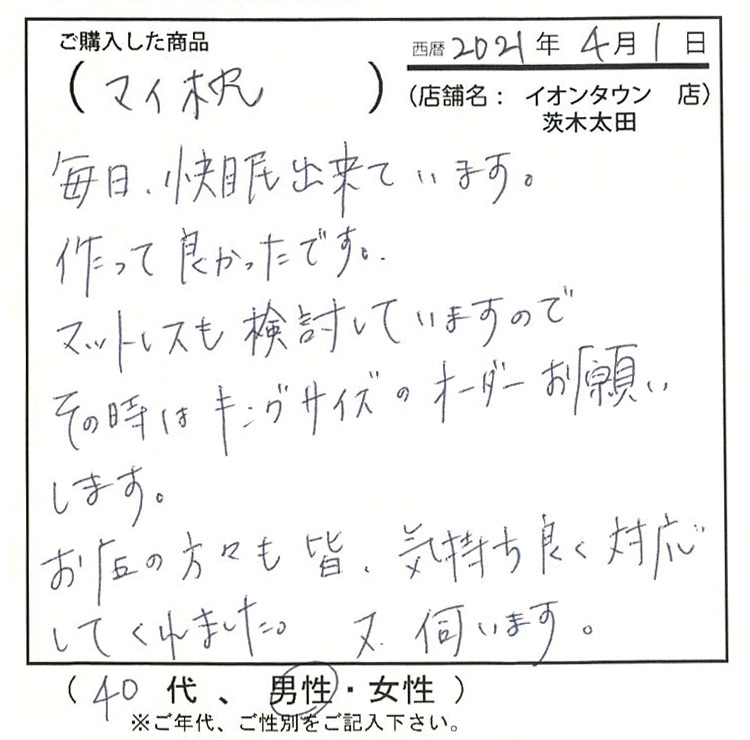 ご購入した商品
西暦 2021 年 4 月 1 日
(マイ枕)
(店舗名： イオンタウン 店)
茨木太田
毎日、快眠出来ています。
作って良かったです。
マットレスも検討していますので
その時はキングサイズのオーダーお願い
します。
お店の方々も皆、気持ち良く対応
してくれました。 又、伺います。
(40 代、男性・女性)
※ご年代、ご性別をご記入下さい。